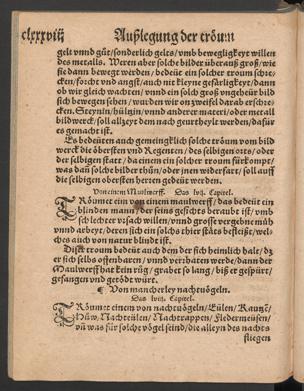 clxxxviij Außlegung der tröum
gelt vnnd güt/sonderlich geles/vmb bewegligkeyt willen
des metalls. Weren aber solche bilder überauß groß/wie
sie dann bewegt werden/bedeüt ein solcher troum schre-
cken/forcht vnd angst/auch nit kleyne geferligkeyt/dann
ob wir gleich wachten/vnnd ein solch groß vngeheür bild
sich bewegen sehen/wurden wir on zweifel darab erschre-
cken. Steynin/hültzin/vnnd anderer materi/oder metall
bildwerck/soll allzeyt dem nach geurtheylt werden/dafür
es gemacht ist.
Es bedeüten auch gemeingklich solche troum vom bild
werck die obersten vnd Regenten/des selbigen orts/oder
der selbigen statt/da einem ein solcher troum fürkompt/
was dañ solche bilder thün/oder jnen widerfart/soll auff
die selbigen obersten herren gedeüt werden.
Von einem Maulwerff. Das lvij. Capitel.
TRöumet ein von einem maulwerff/das bedeüt ein
blinden mann/der seins gesichts beraubt ist/vmb
sch lechter vrsach willen/vnnd grosse vergebne müh
vnnd arbeyt/deren sich ein solchs thier stäts befleißt/wel-
ches auch von natur blind ist.
Disse troum bedeüt auch dem der sich heimlich halt/dz
er sich selbs offenbaren/vnnd verrhaten werde/dann der
Maulwerff hat kein rüg/grabet so lang/biß er gespürt/
gefangen vnd getödt würt.
¶ Von mancherley nachtuögeln.
Das lviij. Capitel.
TRöumet einem von nachtuögeln/Eülen/Kautzē/
Hüw/Nachteülen/Nachtrappen/Fledermeüsen/
vñ was für solche vögel seind/die alleyn des nachts
fliegen